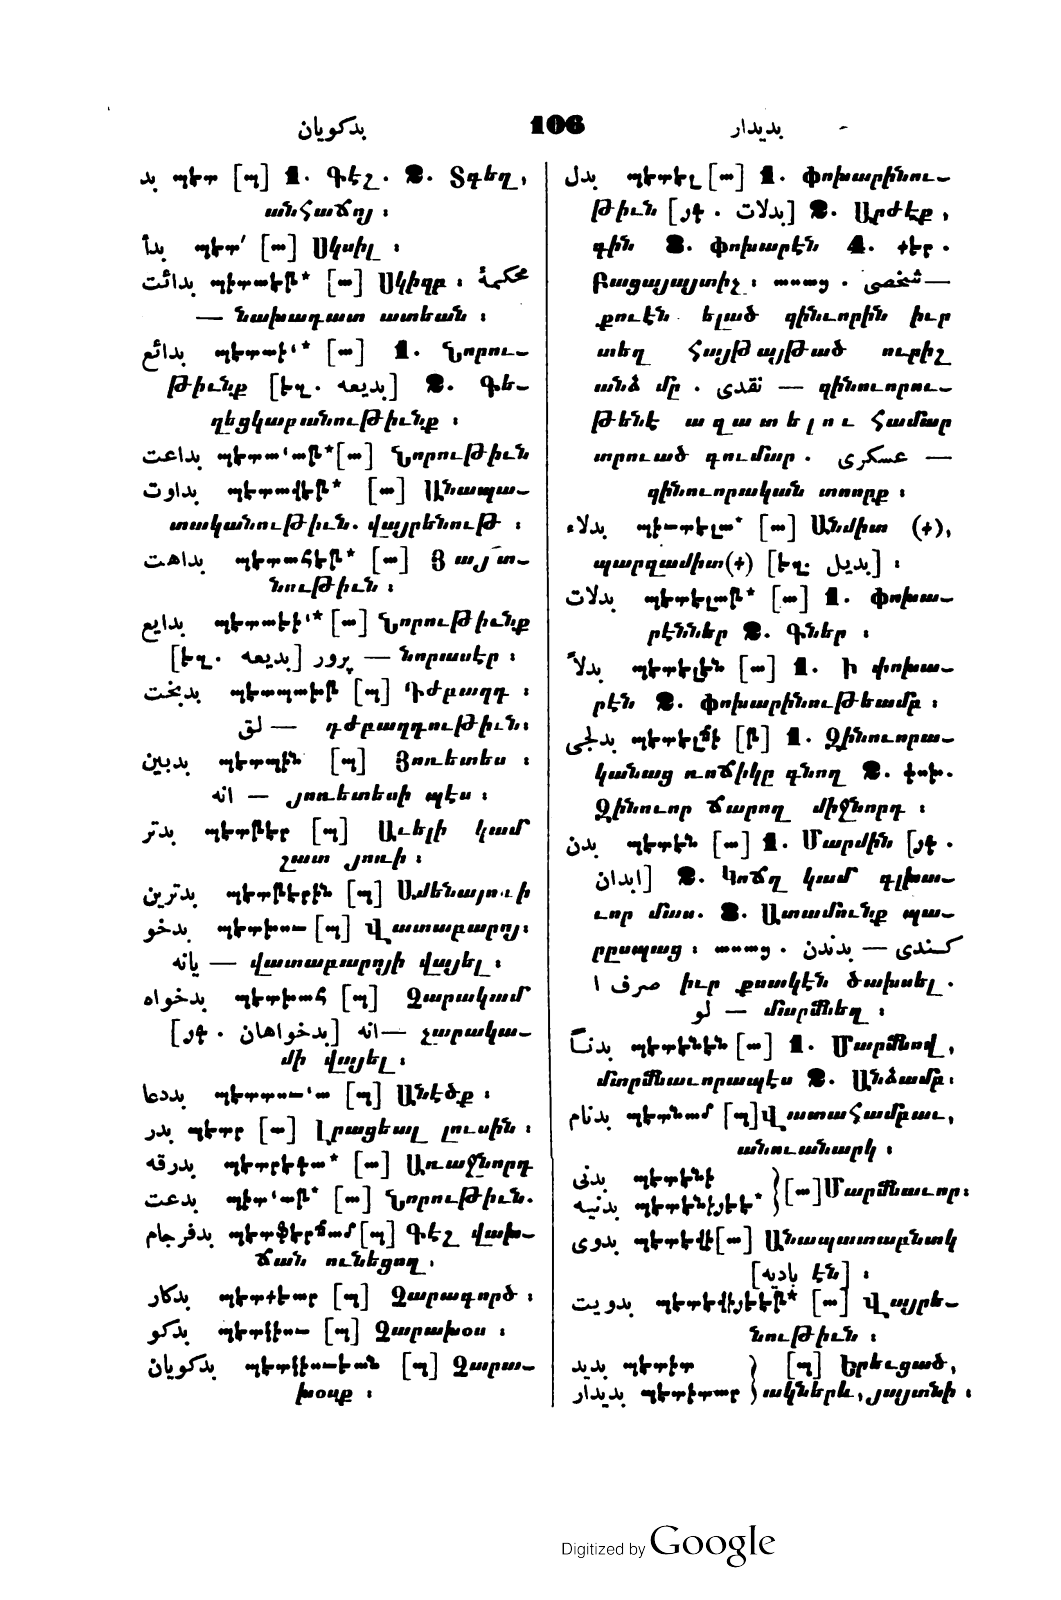 بدکویان 106 بدیدار
بد պետ [պ] 1. Գէշ. 2. Տգեղ,
անհաճոյ :
بدأ պետ՛ [ա] Սկսիլ :
بدائت պիտաէթ* [ա] Սկիզբ : محکمهٔ
— նախադատ ատեան :
بدائع պետաի՛* [ա] 1. Նորու–
թիւնք [եզ. بدیعه] 2. Գե–
ղեցկաբանութիւնք :
بداعت պետա՛աթ* [ա] Նորութիւն
بداوت պետավէթ* [ա] Անապա–
տականութիւն. վայրենութ :
بداهت պետահէթ* [ա] Յայտ–
նութիւն :
بدایع պետաեի՛* [ա] Նորութիւնք
[եզ. بدیعه] پرور — նորասէր :
بدبخت պետպախթ [պ] Դժբաղդ :
لق — դժբաղդութիւն :
بدبین պետպին [պ] Յոռետես :
انه — յոռետեսի պէս :
بدتر պետթէր [պ] Աւելի կամ
շատ յոռի :
بدترین պետթէրին [պ] Ամենայոռի
بدخو պետխու [պ] Վատաբարոյ :
یانه — վատաբարոյի վայել :
بدخواه պետխահ [պ] Չարակամ
[յգ. بدخواهان] انه — չարակա–
մի վայել :
بددعا պետտու՛ա [պ] Անէծք :
بدر պետր [ա] Լրացեալ լուսին :
بدرقه պետրեգա* [ա] Առաջնորդ
بدعت պիտ՛աթ* [ա] Նորութիւն.
بدفرجام պետֆէրճամ [պ] Գէշ վախ–
ճան ունեցող.
بدکار պետքեար [պ] Չարագործ :
بدکو պետկիւ [պ] Չարախօս :
بدکویان պետկիւեան [պ] Չարա–
խօսք :
بدل պետէլ [ա] 1. Փոխարինու–
թիւն [յգ. بدلات] 2. Արժէք,
գին 3. փոխարէն 4. քեր.
Բացայայտիչ : شخصی —
քուէն ելած զինւորին իւր
տեղ հայթայթած ուրիշ
անձ մը. نقدی — զինուորու–
թենէ ազատելու համար
տրուած գումար. عسکری —
զինուորական տուրք :
بدلاء պիւտելա* [ա] Անմիտ (+),
պարզամիտ (+) [եզ. بدیل] :
بدلات պետելաթ* [ա] 1. Փոխա–
րէններ 2. Գներ :
بدلاً պետելէն [ա] 1. ի փոխա–
րէն 2. Փոխարինութեամբ :
بدلجی պետելճի [թ] 1. Զինուորա–
կանաց ռոճիկը գնող 2.
Զինուոր ճարող միջնորդ :
بدن պետէն [ա] 1. Մարմին [յգ.
ابدان] 2. Կոճղ կամ գլխա–
ւոր մաս. 3. Ատամունք պա–
րըսպաց : کندی — بدندن
صرف ا իւր քսակէն ծախսել.
لو — մարմնեղ :
بدناً պետենէն [ա] 1. Մարմնով,
մարմնաւորապէս 2. Անձամբ :
بدنام պետնամ [պ] Վատահամբաւ,
անուանարկ :
بدنی պետենի
بدنیه պետենիյեէ* } [ա] Մարմնաւոր :
بدوی պետեվի [ա] Անապատաբնակ
[بادیه էն] :
بدویت պետեվիյեէթ* [ա] Վայրե–
նութիւն :
بدید պետիտ } [պ] Երեւցած,
بدیدار պետիտար } ակներև, յայտնի :
Digitized by Google